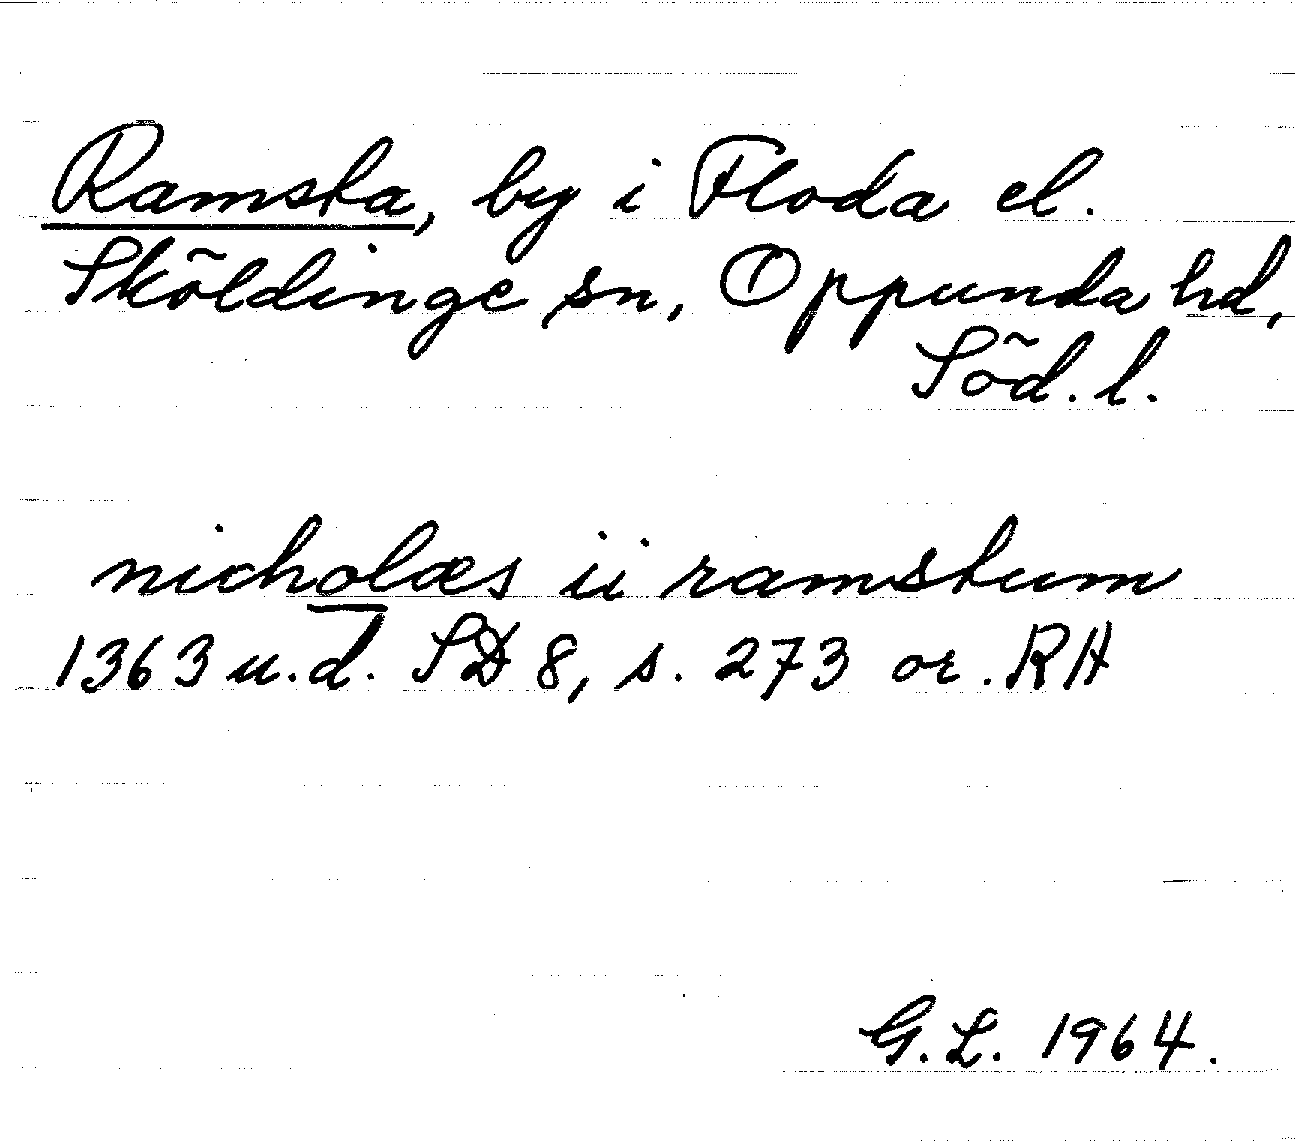 Ramsta, by i Floda el.
Sköldinge sn, Oppunda hd,
Söd. l.
nicholæs ii ramstum
1363 u.d. SD 8, s. 273 or. RH
G.L. 1964.